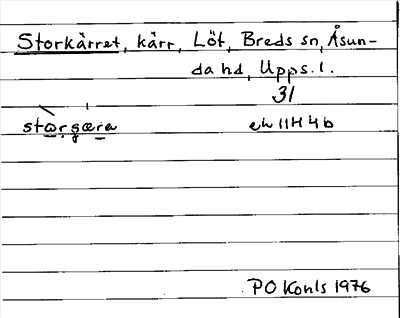 Storkärret, kärr, Löt, Breds sn, Åsun-
da hd, Upps. l.
31
storgæra ek 11H 4b
PO Konls 1976